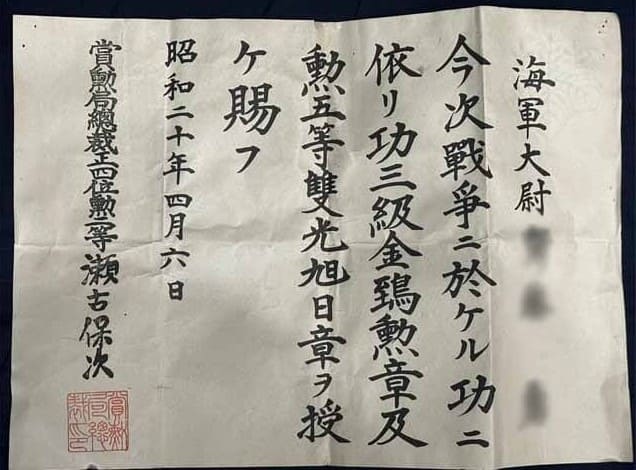 海軍大尉
今次戰爭ニ於ケル功ニ
依リ功三級金鵄勲章及
勲五等雙光旭日章ヲ授
ケ賜フ
昭和二十年四月六日
賞勲局總裁正四位勲二等瀬古保次
賞勲局總裁之印